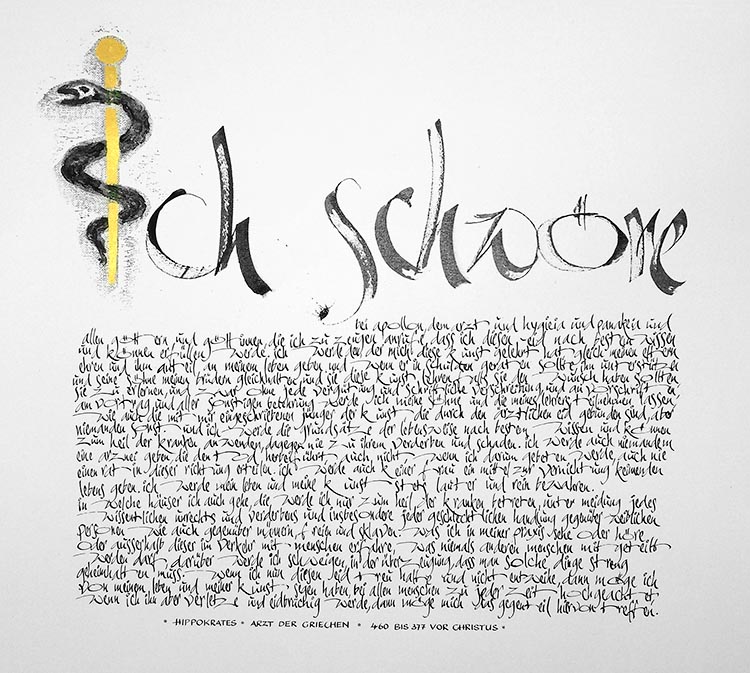 ich schwöre
bei apollon, dem arzt und hygieia und panakeia und
allen göttern und göttinnen, die ich zu zeugen anrufe, dass ich diesen eid nach bestem wissen
und können erfüllen werde. ich werde den, der mich diese kunst gelehrt hat gleich meinen eltern
ehren und ihm anteil an meinem leben geben und wenn er in schulden geraten sollte, ihn unterstützen
und seine söhne meinen brüdern gleichhalten und sie diese kunst lehren, falls sie den wunsch haben sollten,
sie zu erlernen, und zwar ohne jede vergütung und schriftliche verschreibung und an vorschriften,
am vortrag und aller sonstigen belehrung werde ich meine söhne und die meines lehrers teilnehmen lassen,
wie auch die mit mir eingeschriebenen jünger der kunst die durch den ärztlichen eid gebunden sind, aber
niemanden sonst. und ich werde die grundsätze der lebensweise nach bestem wissen und können
zum heil der kranken anwenden, dagegen nie zu ihrem verderben und schaden. ich werde auch niemandem
eine arznei geben, die den tod herbeiführt, auch nicht, wenn ich darum gebeten werde, auch nie
einen rat in dieser richtung erteilen. ich werde auch keiner frau ein mittel zur vernichtung keimenden
lebens geben. ich werde mein leben und meine kunst stets lauter und rein bewahren.
in welche häuser ich auch gehe, die werde ich nur zum heil der kranken betreten, unter meidung jedes
wissentlichen unrechts und verderbens und insbesondere jeder geschlechtlichen handlung gegenüber weiblichen
personen wie auch gegenüber männern, freien und sklaven. was ich in meiner praxis sehe oder höre
oder ausserhalb dieser im verkehr mit menschen erfahre, was niemals anderen menschen mitgeteilt
werden darf, darüber werde ich schweigen, in der überzeugung, dass man solche dinge streng
geheimhalten muss. wenn ich nun diesen eid treu halte und nicht entweihe, dann möge ich
von meinem leben und meiner kunst segen haben, bei allen menschen zu jeder zeit hochgeachtet,
wenn ich ihn aber verletze und eidbrüchig werde, dann möge mich das gegenteil hiervon treffen.
* HIPPOKRATES * ARZT DER GRIECHEN * 460 BIS 377 VOR CHRISTUS *